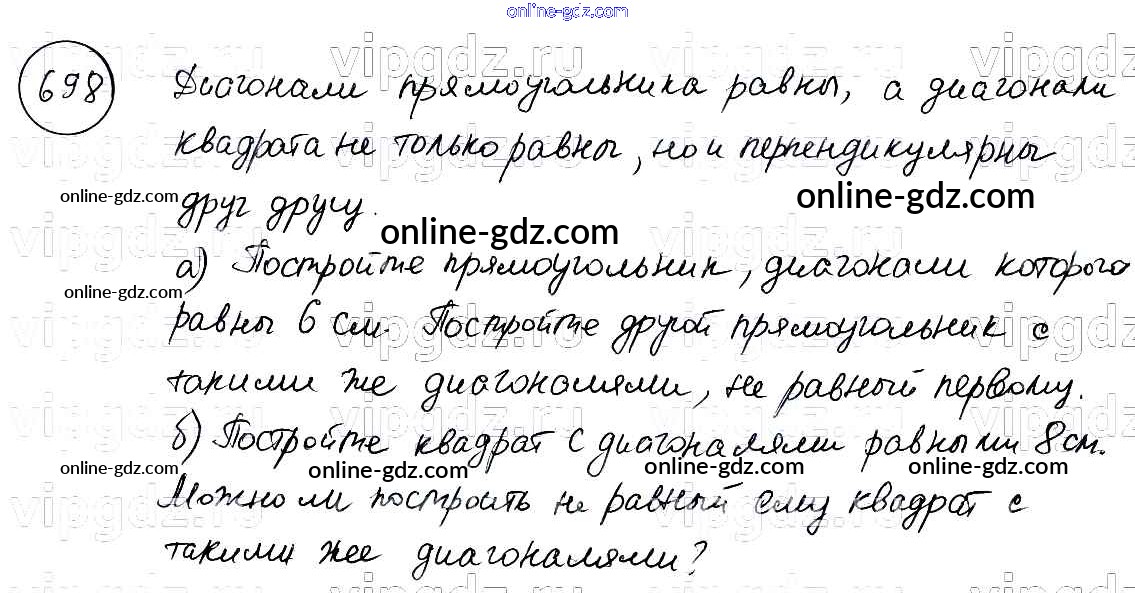 online-gdz.com
698 Диагонали прямоугольника равны, а диагонали
квадрата не только равны, но и перпендикулярны
online-gdz.com online-gdz.com
друг другу.
online-gdz.com
а) Постройте прямоугольник, диагонали которого
online-gdz.com
равны 6 см. Постройте другой прямоугольник с
такими же диагоналями, не равный первому.
б) Постройте квадрат с диагоналями равными 8 см.
online-gdz.com online-gdz.com online-gdz.com online-gdz.com
Можно ли построить не равный ему квадрат с
такими же диагоналями?
vipgdz.ru vipgdz.ru vipgdz